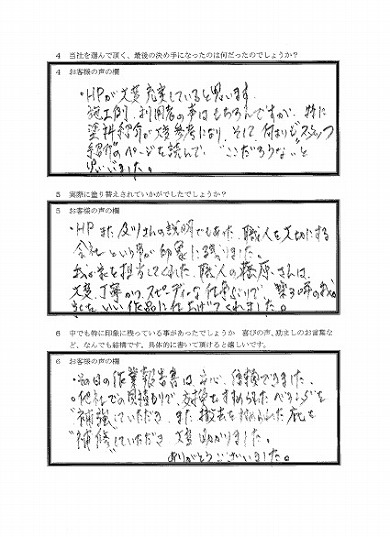 4 当社を選んで頂く、最後の決め手になったのは何だったのでしょうか？
4 お客様の声の欄
・HPが大変充実していると思います。
施工例、利用者の声はもちろんですが、特に
塗料紹介が大変参考になり、そして何よりもスタッフ
紹介のページを読んで、"ここだろうな"と
思いました。
5 実際に塗り替えされていかがでしたでしょうか？
5 お客様の声の欄
・HP、また さんの説明でもあった、職人を大切にする
会社という事が印象に残りました。
我が家を担当してくれた、職人の 原さんは、
大変丁寧かつ、スピーディーな仕事ぶりで、築30年の我が
家を、いい作品に仕上げてくれました。
6 中でも特に印象に残っている事があったでしょうか 喜びの声、励ましのお言葉な
ど、なんでも結構です。具体的に書いて頂けると嬉しいです。
6 お客様の声の欄
・毎日の作業報告書は安心、信頼できました。
・他社での見積もりで、交換をすすめられたベランダを
"補強"していただき、また撤去を すすめられた 庇を
"補修"していただき、大変助かりました。
ありがとうございました。